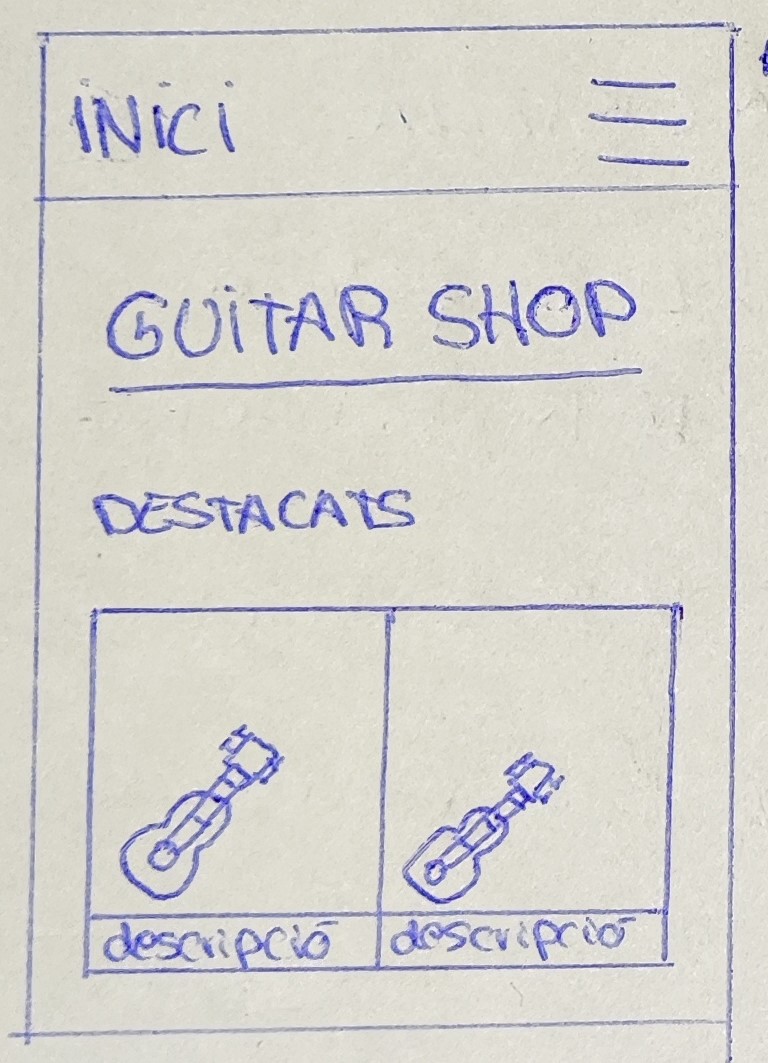 INiCi
GUiTAR SHOP
DESTACATS
descripció descripció